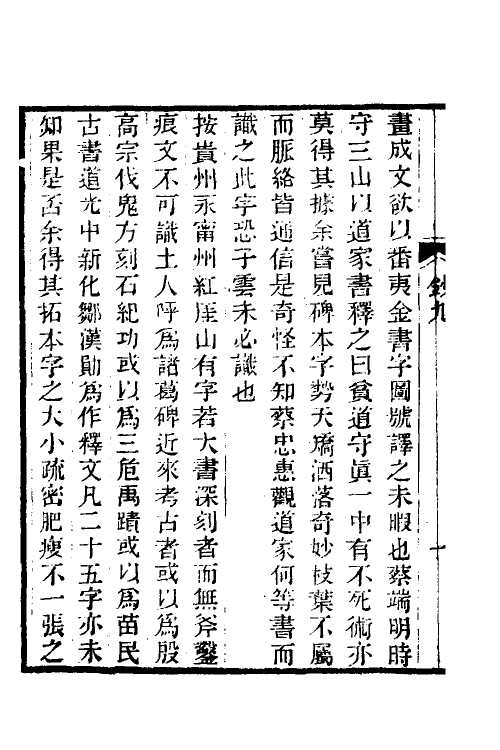 畫成文欲以番夷金書字圖號譯之未暇也蔡端明時
守三山以道家書釋之曰貧道守眞一中有不死術亦
莫得其據余嘗見碑本字勢夭矯洒落奇妙枝葉不屬
而脈絡皆通信是奇怪不知蔡忠惠觀道家何等書而
識之此字恐子雲未必識也
按貴州永甯州紅崖山有字若大書深刻者而無斧鑿
痕文不可識土人呼爲諸葛碑近來考古者或以爲殷
高宗伐鬼方刻石紀功或以爲三危禹蹟或以爲苗民
古書道光中新化鄒漢勛爲作釋文凡二十五字亦未
知果是否余得其拓本字之大小疏密肥瘦不一張之
鈔九
十